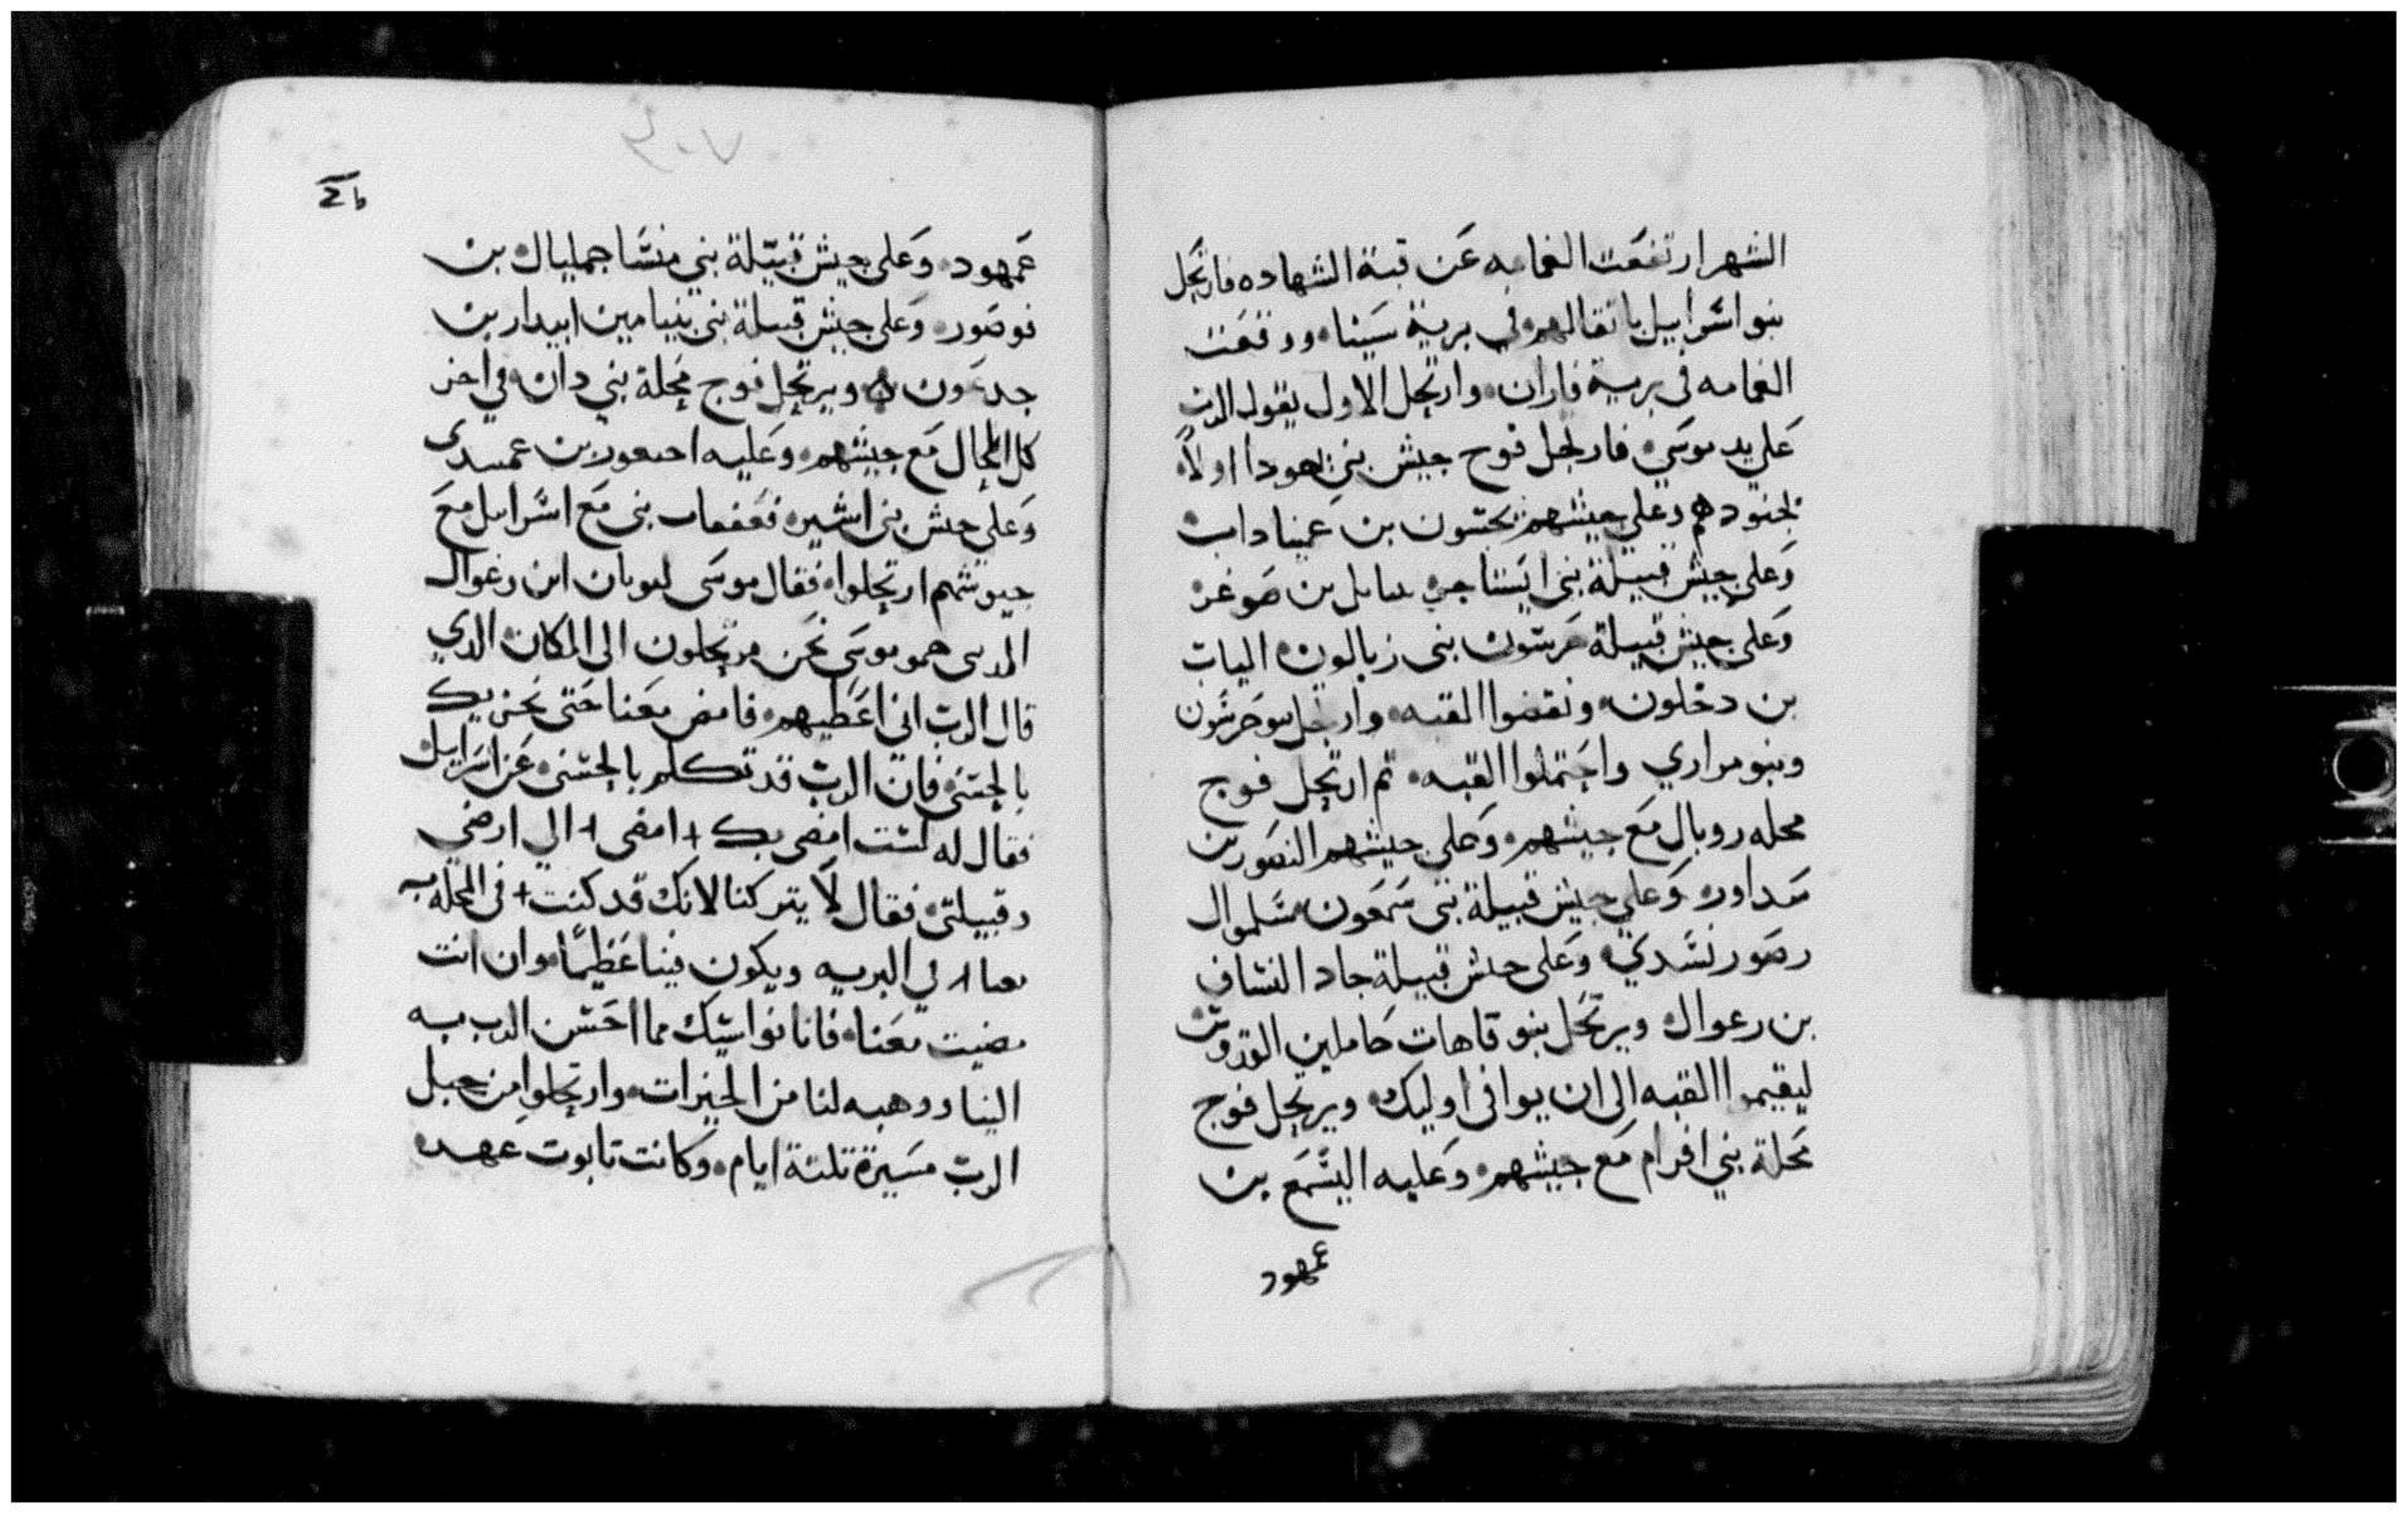 الشهر ارتفعت الغمامه عن قبة الشهاده فارتحل
بنو اسراييل باتقالهم في برية سينا ووقفت
الغمامه فى برية فاران وارتحل الاول بقول الرب
على يد موسى فارتحل فوج جيش بني يهودا اولاً
بجنودهم وعلى جيشهم نحشون بن عميناداب
وعلى جيش قبيلة بنى ايساخر بن صوغر
وعلى جيش قبيلة بنى زبالون الياب
بن دخلون ونقضوا القبه وارتحل بنو جرشون
وبنو مراري واحتملوا القبه ثم ارتحل فوج
محله روبال مع جيشهم وعلى جيشهم اليصور بن
سداور وعلي جيش قبيلة بنى سمعون سلموال
وعلى جيش قبيلة جاد النشاف
بن رعوال ويرتحل بنو قاهات حاملين القدوس
ليقيموا القبه الى ان يوافى اوليك ويرتحل فوج
محلة بني افرام مع جيشهم وعليه اليشمع بن
عمهود
٤٠٧
عمهود وعلى جيش قبيلة بني منشا جمليال بن
فوصور وعلى جيش قبيلة بنى بنيامين ابيدار بن
جدعون ويرتحل فوج محلة بني دان في اخر
كل المحال مع جيشهم وعليه احيعور بن عميسدى
وعلي جيش بنى اشير اسرايل مع
جيوشهم ارتحلوا فقال موسى لـوبان ابن رغوال
المدينى حمو موسى نحن مرتحلون الى المكان الدي
قال الرب اني اعطيهم فامض معنا حتى نحن بك
بالحسنى فان الرب قد تكلم بالحسنى عن اسراييل
فقال له لست امضى بك + امضى + الي ارضي
وقبيلتى فقال لا يتركنا لانك قد كنت + فى المحله
معنا في البريه ويكون فينا عظيمًا وان انت
مضيت معنا فانا نواسيك مما احسن الرب به
الينا ووهبه لنا من الخيرات وارتحلوا من جبل
الرب مسيرة تلتة ايام وكانت تابوت عهد